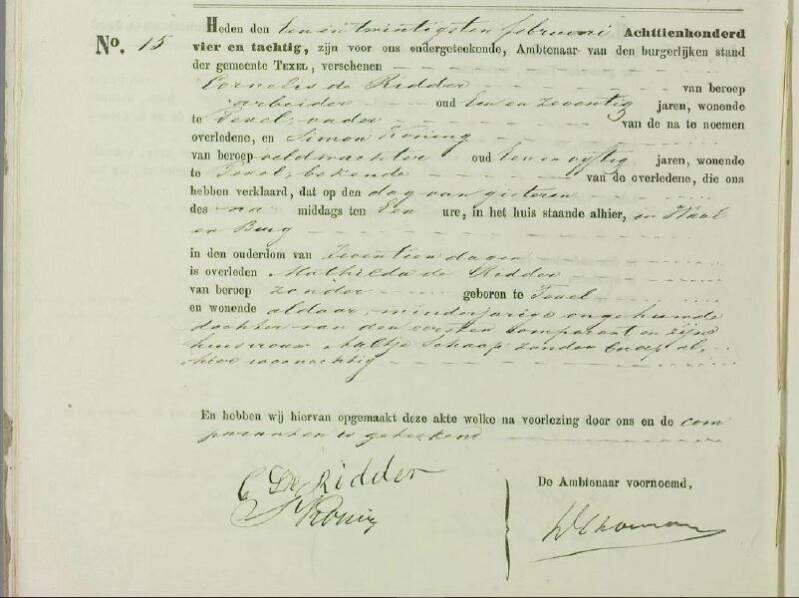 No. 15
Heden den een en twintigsten februari Achttienhonderd
vier en tachtig, zijn voor ons ondergeteekende, Ambtenaar van den burgerlijken stand
der gemeente TEXEL, verschenen
Cornelis de Ridder van beroep
arbeider oud Een en zeventig jaren, wonende
te Texel, vader van de na te noemen
overledene, en Simon Koning
van beroep veldwachter oud Een en vijftig jaren, wonende
te Texel, bekende van de overledene, die ons
hebben verklaard, dat op den dag van gisteren
des na middags ten Een ure, in het huis staande alhier, in Waal
en Burg
in den ouderdom van Zeventien dagen
is overleden Mathilda de Ridder
van beroep zonder geboren te Texel
en wonende aldaar, minderjarige ongehuwde
dochter van den eersten Comparant en zijne
huisvrouw Aaltje Schaap zonder beroep al,
hier woonachtig
En hebben wij hiervan opgemaakt deze akte welke na voorlezing door ons en de com
paranten is geteekend
C De Ridder
S Koning
De Ambtenaar voornoemd,